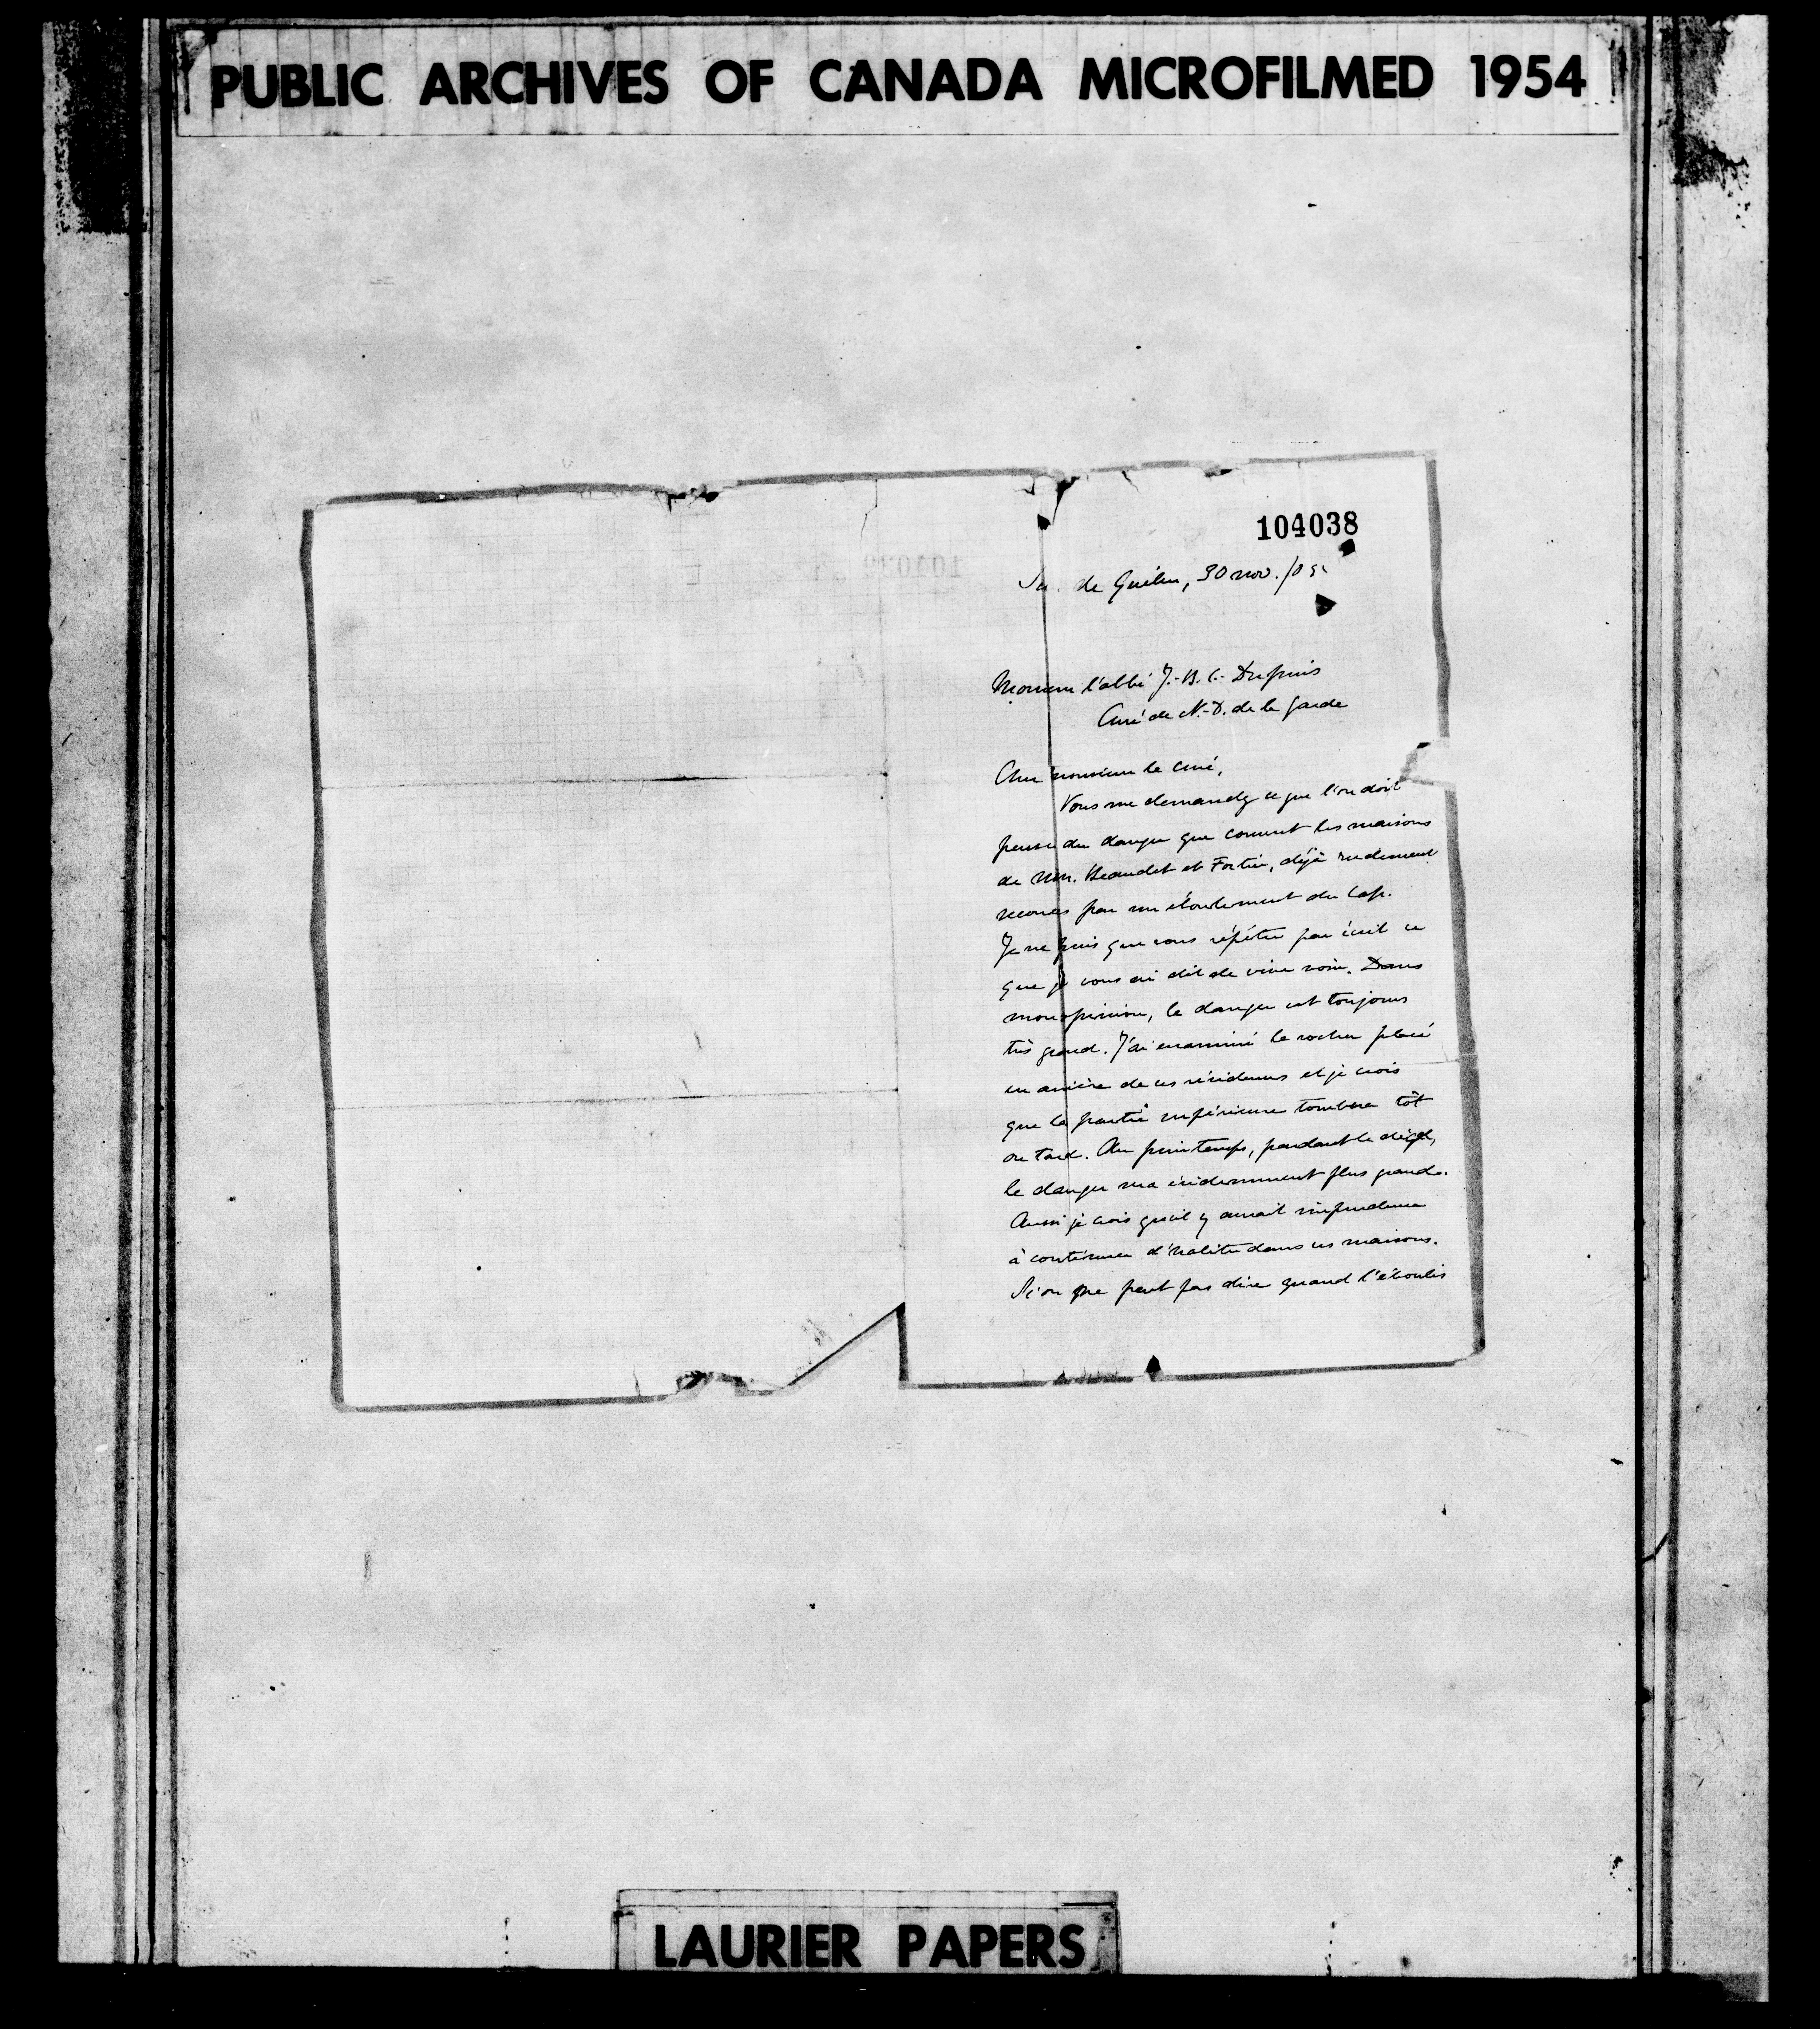 PUBLIC ARCHIVES OF CANADA MICROFILMED 1954
104038
de Québec, 30 nov. /
Monsieur l'abbé J.-B. C.- Dupuis
Curé de N.-D. de la Garde
Cher monsieur le curé,
Vous me demandez ce que l'on doit
penser du danger que courent les maisons
de MM. Beaudet et Fortier, déjà rudement
secoués par un éboulement du Cap.
Je ne puis que vous répéter par écrit ce
que je vous ai dit de vive voix. Dans
mon opinion, le danger est toujours
très grand. J'ai examiné le rocher placé
en arrière de ces résidences et je crois
que la partie supérieure tombera tôt
ou tard. Au printemps, pendant le dégel,
le danger sera évidemment plus grand.
Aussi je crois qu'il y aurait imprudence
à continuer d'habiter dans ces maisons.
Si on ne peut pas dire quand l'éboulis
LAURIER PAPERS